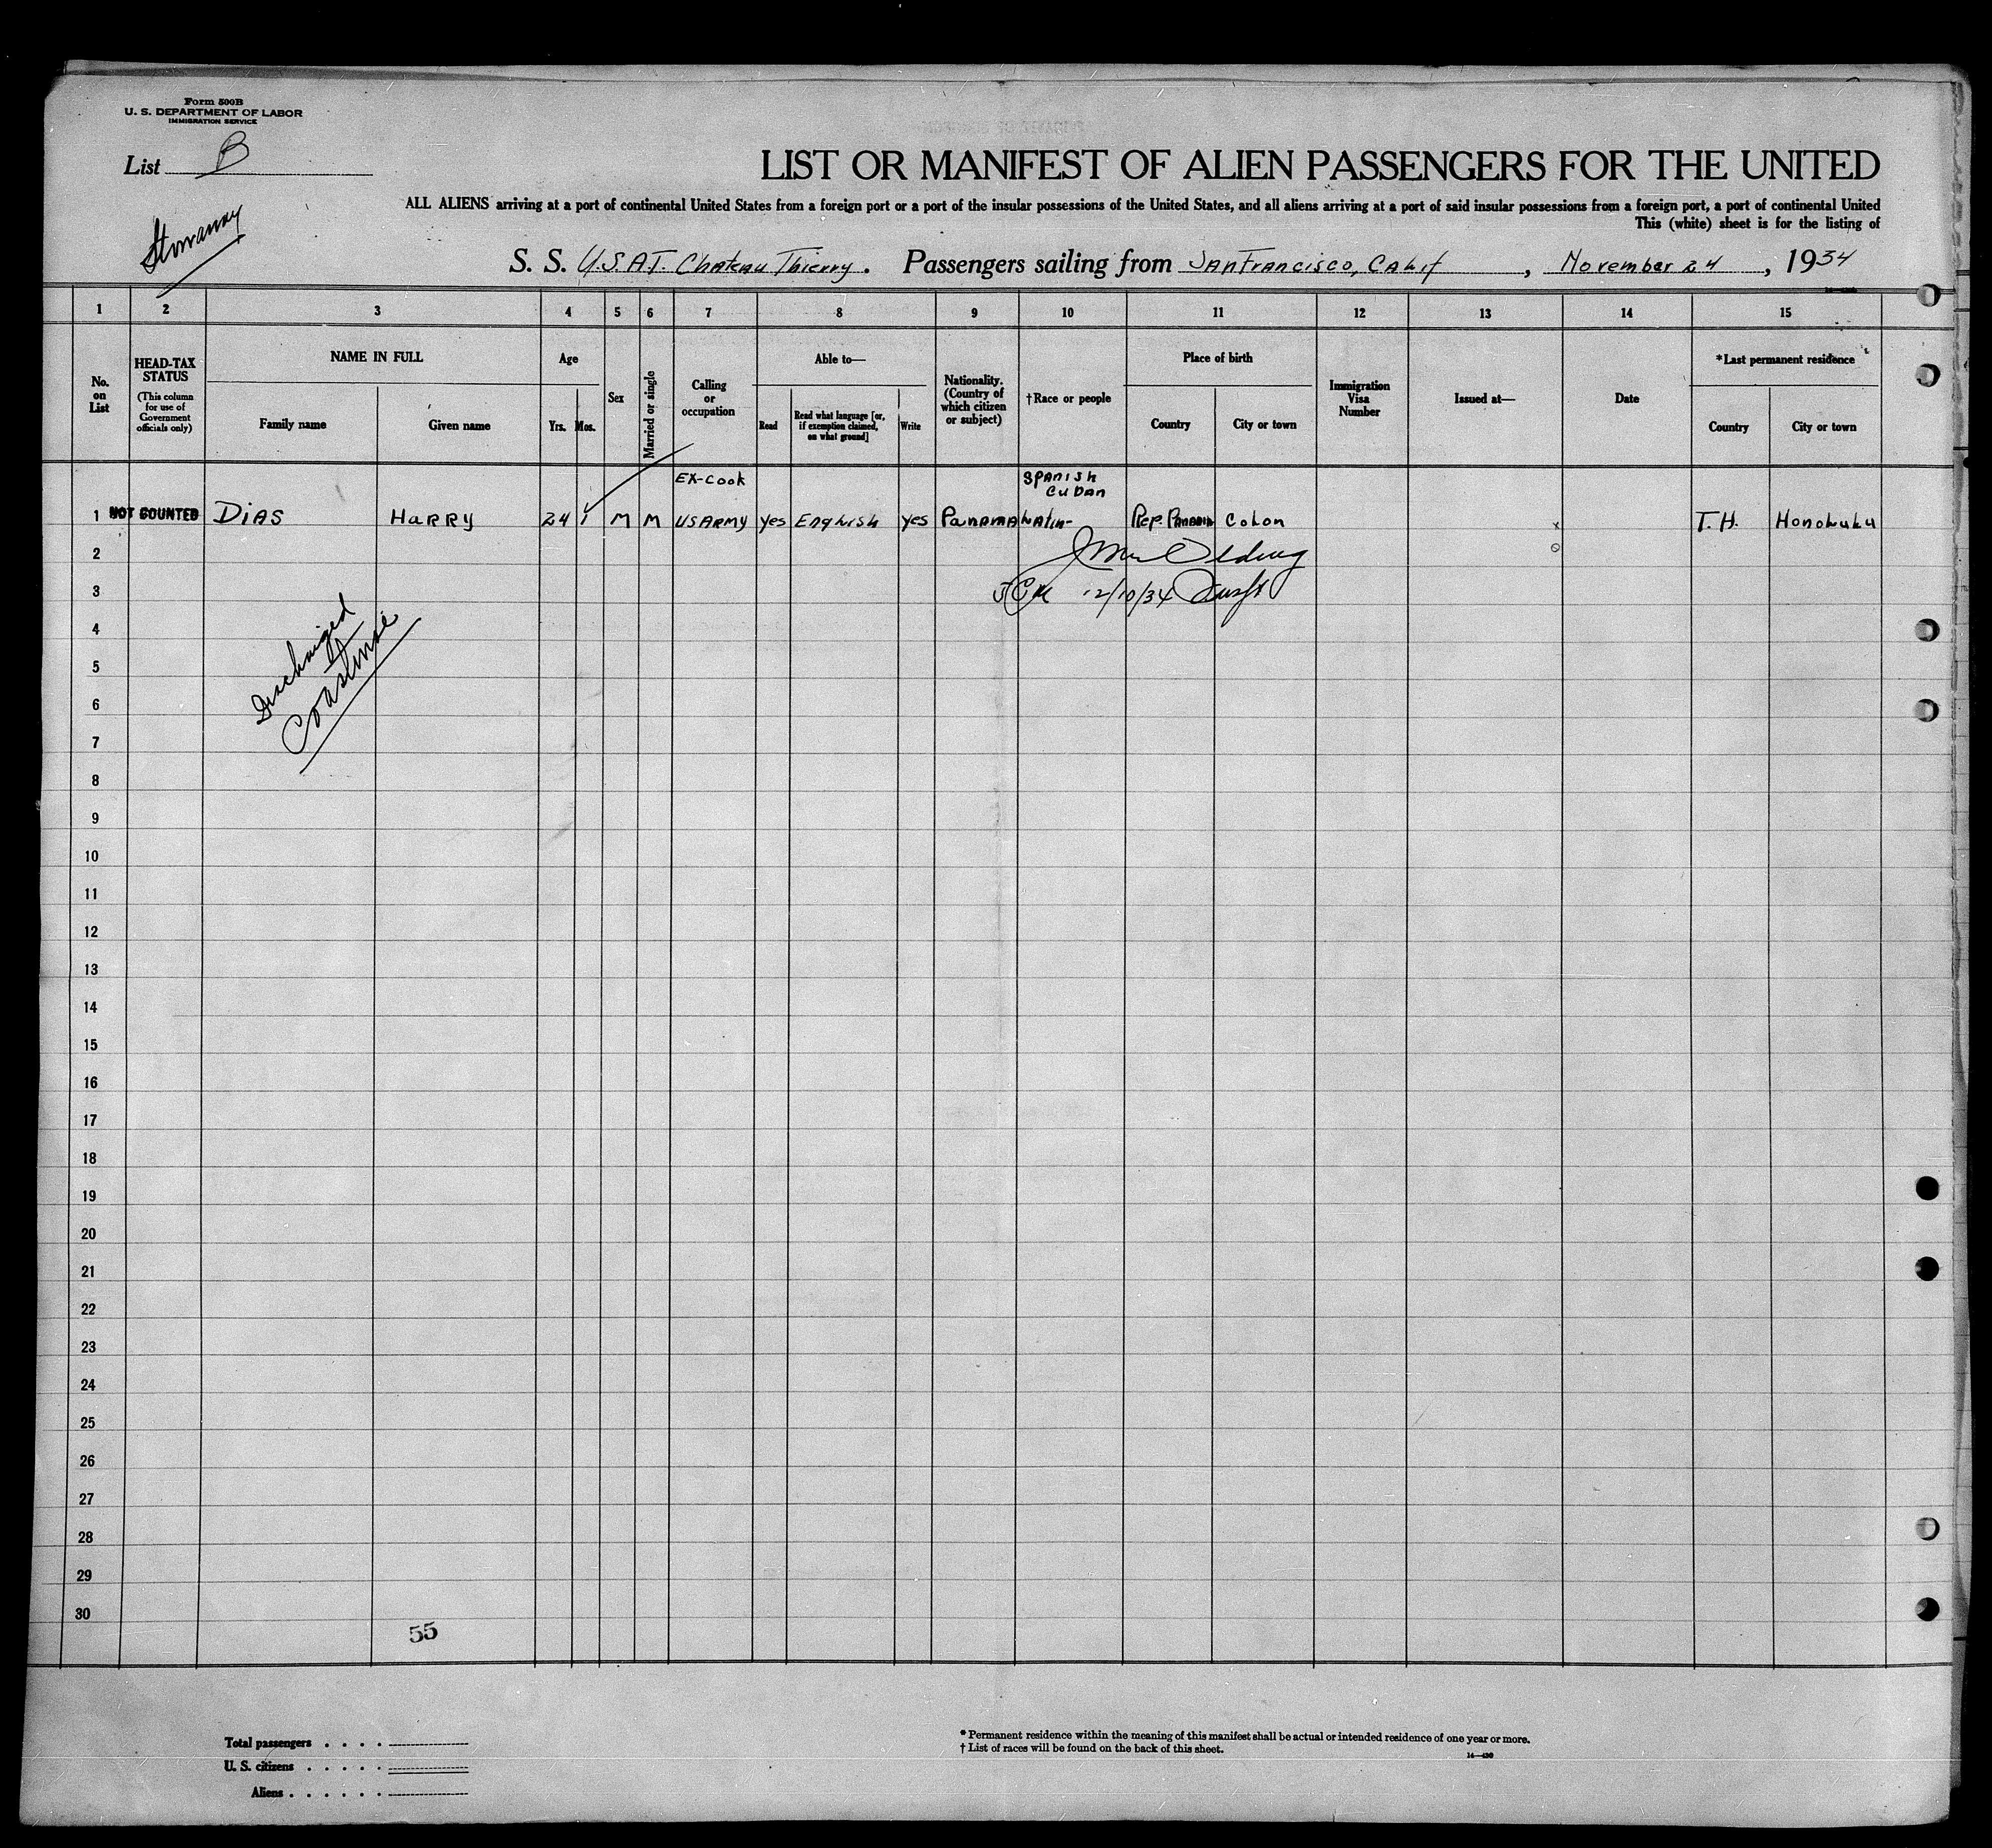 Form 500B
U. S. DEPARTMENT OF LABOR
IMMIGRATION SERVICE
List B
Stowaway
LIST OR MANIFEST OF ALIEN PASSENGERS FOR THE UNITED
ALL ALIENS arriving at a port of continental United States from a foreign port or a port of the insular possessions of the United States, and all aliens arriving at a port of said insular possessions from a foreign port, a port of continental United
This (white) sheet is for the listing of
S. S. U.S.A.T. Chateau Thierry. Passengers sailing from San Francisco, Calif, November 24, 1934
1 2 3 4 5 6 7 8 9 10 11 12 13 14 15
No. on List
HEAD-TAX STATUS
(This column for use of Government officials only)
NAME IN FULL
Family name
Given name
Age
Yrs. Mos.
Sex
Married or single
Calling or occupation
Able to—
Read
Read what language [or, if exemption claimed, on what ground]
Write
Nationality. (Country of which citizen or subject)
†Race or people
Place of birth
Country
City or town
Immigration Visa Number
Issued at—
Date
*Last permanent residence
Country
City or town
Ex-Cook
Spanish
Cuban
1 NOT COUNTED Dias Harry 24 1 M M US Army yes English yes Panama Latin- Rep. Panama Colon x T.H. Honolulu
2
3
12/10/34
4
Discharged
Coastwise
5
6
7
8
9
10
11
12
13
14
15
16
17
18
19
20
21
22
23
24
25
26
27
28
29
30
55
Total passengers
U. S. citizens
Aliens
* Permanent residence within the meaning of this manifest shall be actual or intended residence of one year or more.
† List of races will be found on the back of this sheet.
14—430